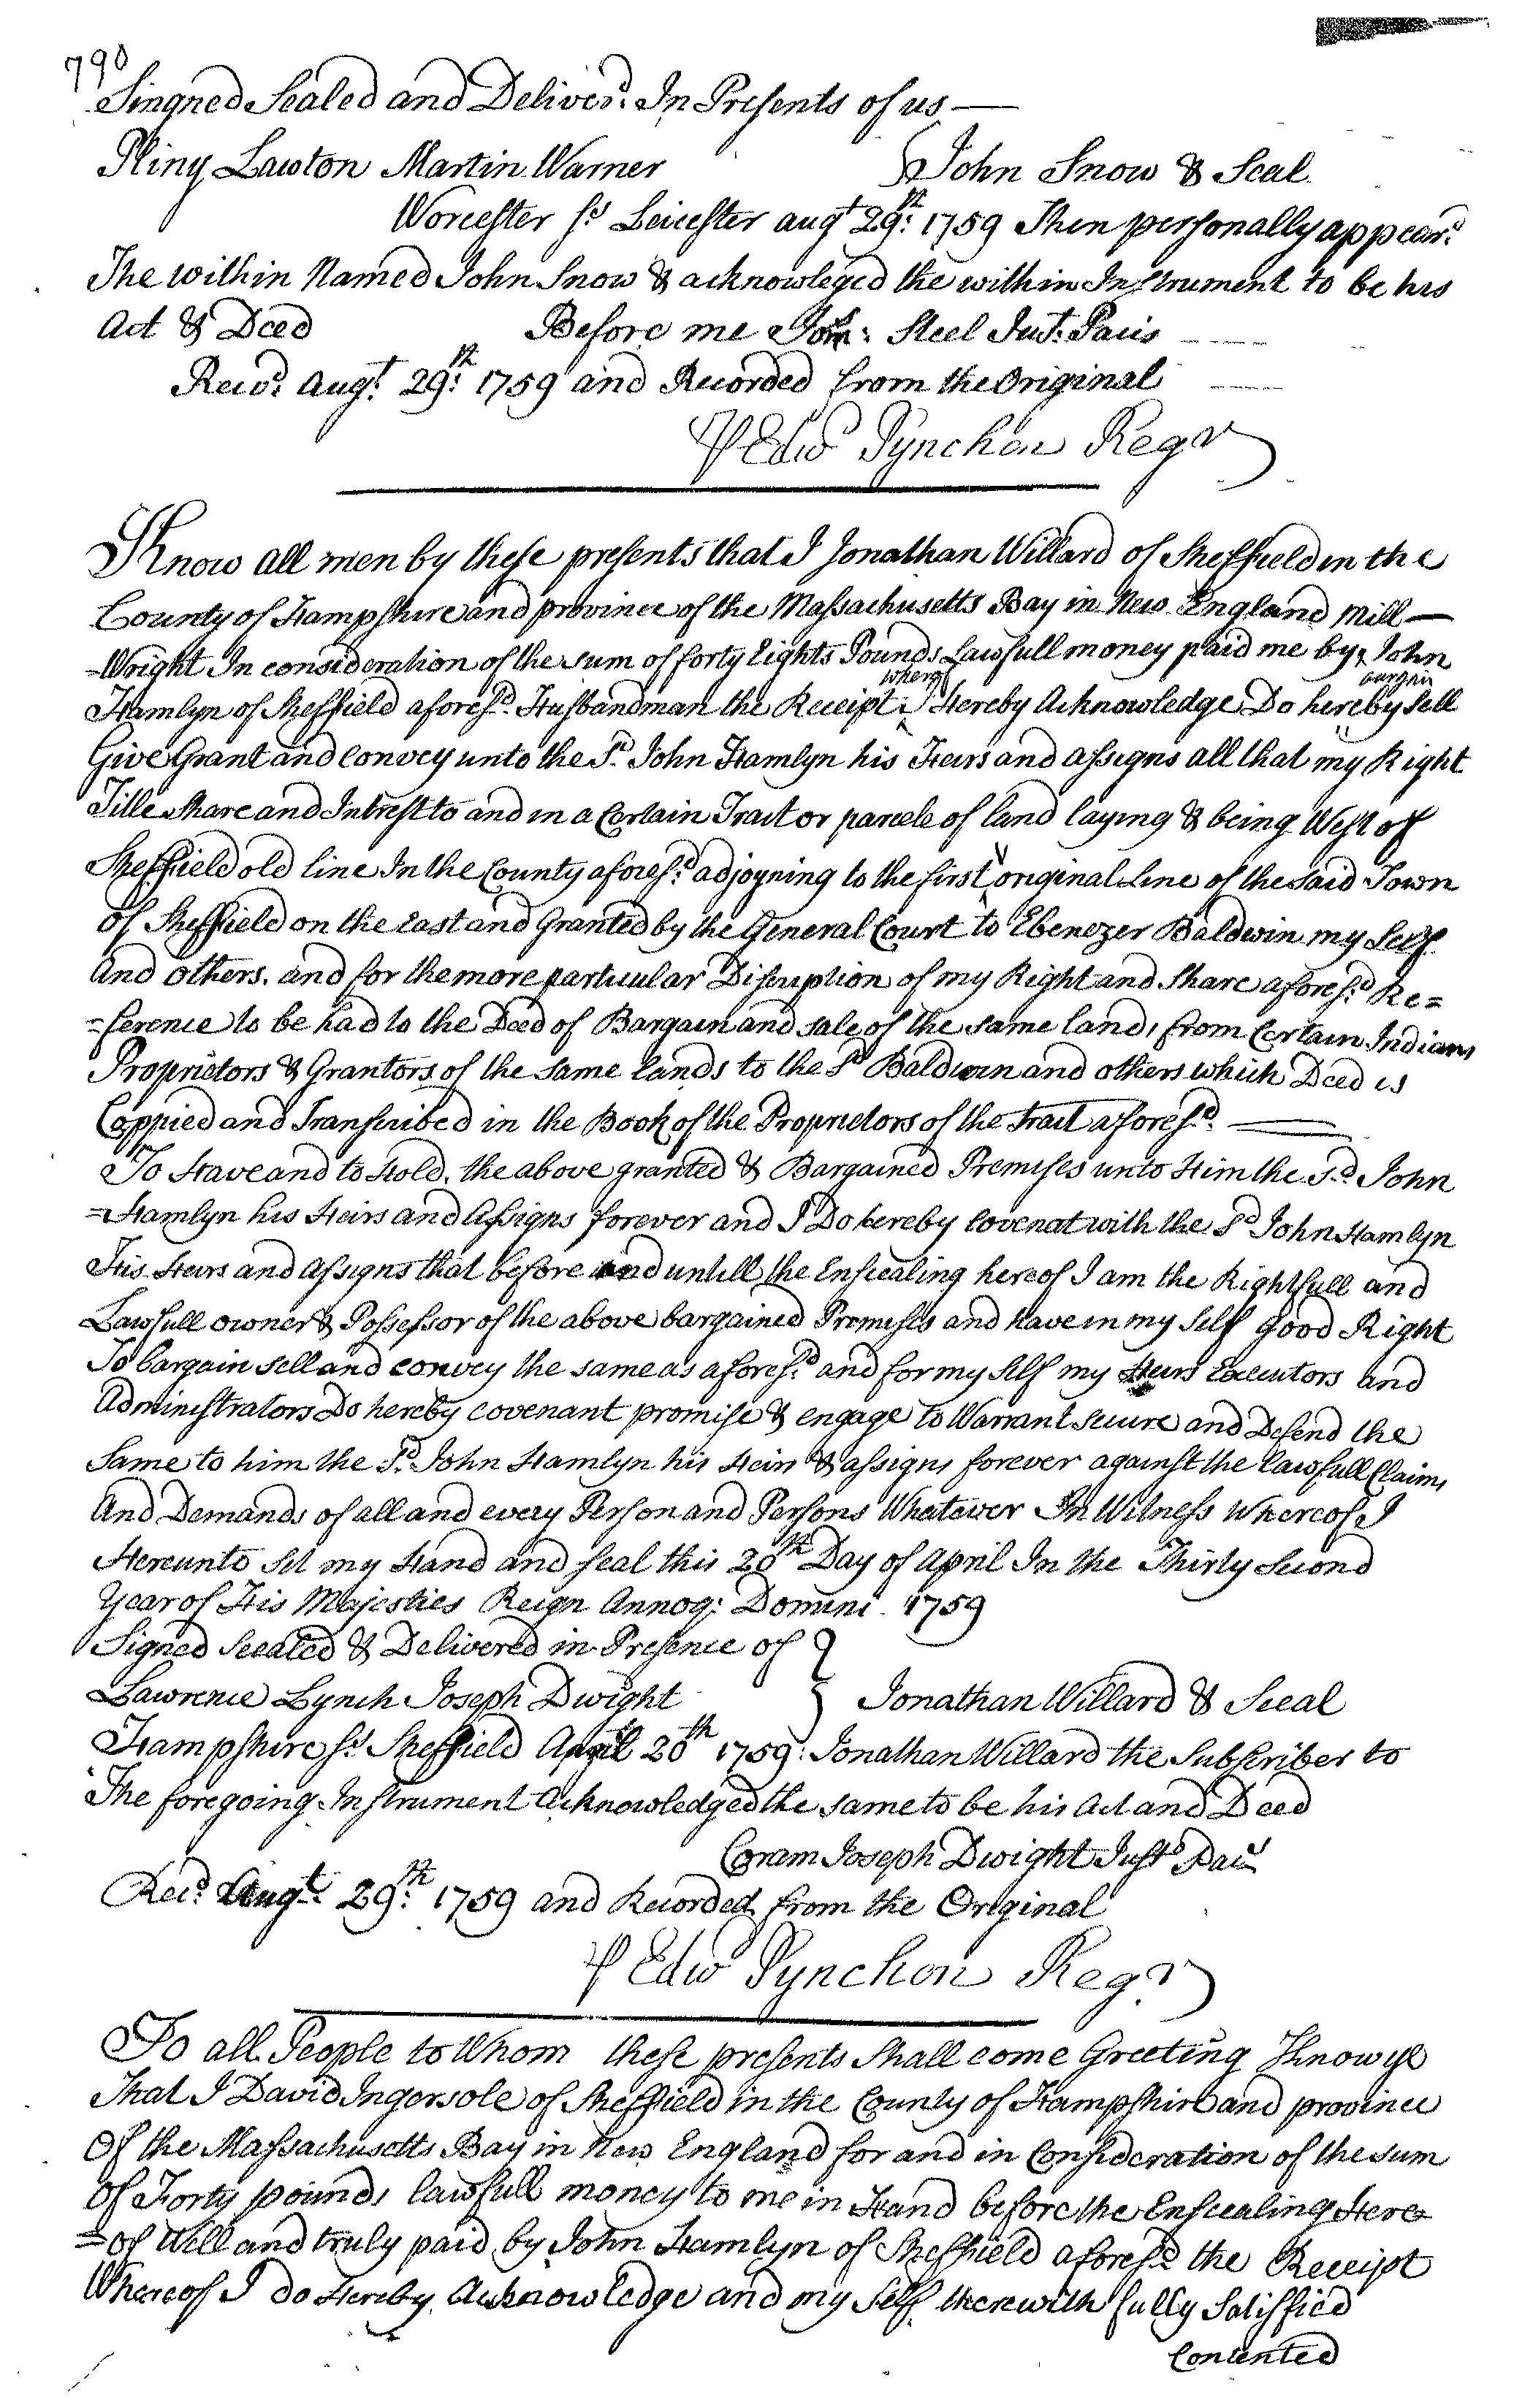 790
Singned Sealed and Deliver'd. In Presents of us —
Pliny Lawton Martin Warner } John Snow & Seal
Worcester Ss Leicester augt 29th: 1759 Then personally appear'd
The within Named John Snow & acknowleged the within Instrument to be his
Act & Deed Before me Steel Just: Pacis
Recd. Augt. 29th: 1759 and Recorded from the Original
⅌ Edwd Pynchon Regr
Know all men by these presents that I Jonathan Willard of Sheffield in the
County of Hampshire and province of the Massachusetts Bay in New England Mill —
-Wright In consideration of the sum of forty Eights Pounds Lawfull money paid me by John
Hamlyn of Sheffield aforesd. Husbandman the Receipt whereof I Hereby Acknowledge Do hereby bargain Sell
Give Grant and Convey unto the Sd. John Hamlyn his Heirs and assigns all that my Right
Title Share and Intrest to and in a Certain Tract or parcele of land laying & being West of
Sheffield old line In the County aforesd. adjoyning to the first original Line of the said Town
Of Sheffield on the East and Granted by the General Court to Ebenezer Baldwin my Self
And others. and for the more particular Discription of my Right and Share aforesd. Re=
=ference to be had to the Deed of Bargain and sale of the same land, from Certain Indians
Proprietors & Grantors of the same Lands to the Sd Baldwin and others which Deed is
Coppied and Transcribed in the Book of the Proprietors of the tract aforesd.
To Have and to Hold, the above granted & Bargained Premises unto Him the Sd. John
=Hamlyn his Heirs and Assigns forever and I Do hereby Covenat with the Sd John Hamlyn
His Heirs and Assigns that before and untill the Ensealing hereof I am the Rightfull and
Lawfull owner & Possessor of the above bargained Premises and Have in my Self Good Right
To bargain Sell and convey the same as aforesd. and for my Self my Heirs Executors and
Administrators Do hereby covenant promise & engage to Warrant Secure and Defend the
Same to him the Sd. John Hamlyn his Heirs & assigns forever against the lawfull Claims
And Demands of all and every Person and Persons Whatever In Witness Whereof I
Hereunto Set my Hand and Seal this 20th Day of April In the Thirty Second
Year of His Majesties Reign Annoq: Domini 1759
Signed Sealed & Delivered in Presence of }
Lawrence Lynch Joseph Dwight } Jonathan Willard & Seal
Hampshire Ss Sheffield April 20th 1759: Jonathan Willard the Subscriber to
The foregoing Instrument Acknowledged the same to be his Act and Deed
Coram Joseph Dwight Just Pacis
Recd. Augt. 29th: 1759 and Recorded from the Original
⅌ Edwd Pynchon Regr
To all People to Whom these presents Shall come Greeting Know ye
That I David Ingersole of Sheffield in the County of Hampshire and province
Of the Massachusetts Bay in New England for and in Consideration of the sum
Of Forty pounds lawfull money to me in Hand before the Ensealing Here
=of Well and truly paid by John Hamlyn of Sheffield aforesd the Receipt
Whereof I do Hereby Acknowledge and my Self therewith fully Satisfied
Contented